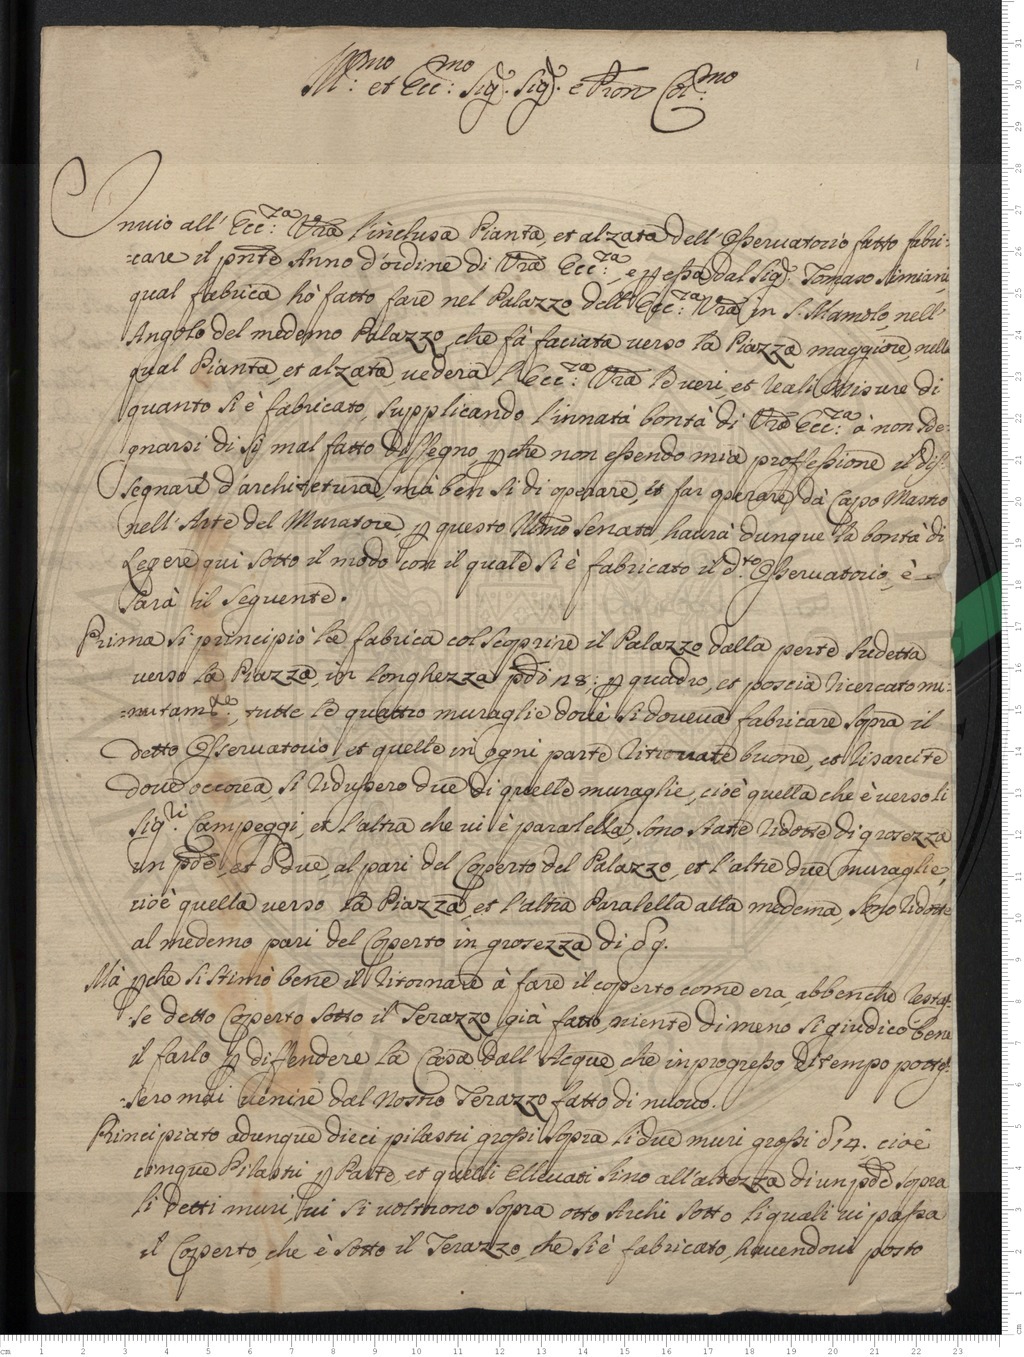 Ill:mo et Ecc:mo Sig. Sig. e Pron Col:mo
Inuio all' Ecc:za Vra l'inclusa Pianta, et alzata dell' Osseruatorio fatto fabri-
-care il pnte Anno d'ordine di Vra Ecc:za, e p essa dal Sig. Tomaso Simiani,
qual fabrica hò fatto fare nel Palazzo dell' Ecc:za Vra in S. Mamolo, nell'
Angolo del medemo Palazzo, che fà faciata verso la Piazza maggiore, nella
qual Pianta, et alzata uederà l'Ecc:za Vra le ueri, et reali Misure di
quanto si è fabricato, supplicando l'innata bontà di Vra Ecc:za à non sde-
gnarsi di sì mal fatto dissegno, p che non essendo mia proffessione il dis-
segnare d'architetura, mà ben sì di operare, et far operare dà Capo Mastro
nell' Arte del Muratore, p questo Illmo Senato haurà dunque la bontà di
Legere quì sotto il modo con il quale si è fabricato il d.to Osseruatorio, è
sarà il seguente.
Prima si principiò la fabrica col scoprire il Palazzo dalla perte sudetta
uerso la Piazza, in longhezza pdi n 8: p quadro, et poscia ricercato mi-
-nutam.te, tutte le quattro muraglie doue si doueua fabricare sopra il
detto Osseruatorio, et quelle in ogni parte ritrouate buone, et risarcite
doue occorea, si ridussero due di quelle muraglie, cioè quella che è uerso li
Sig.ri Campeggi, et l'altra che ui è paralella, sono state ridotte di grosezza
un pde, et due, al pari del Coperto del Palazzo, et l'altre due muraglie,
cioè quella uerso la Piazza, et l'altra Paralella alla medema, sono ridotte
al medemo pari del Coperto in grosezza di 9.
Mà p che si stimò bene il ritornare à fare il coperto come era, abbenche restas-
-se detto Coperto sotto il Terazzo già fatto, niente di meno si giudicò bene
il farlo p diffendere la Casa dall' Acque che in progresso di tempo potes-
-sero mai uenire dal Nostro Terazzo fatto di nuouo.
Principiato adunque dieci pilastri grossi sopra li due muri grossi 14. cioè
cinque Pilastri p Parte, et quelli elleuati sino all' altezza di un pde sopra
li detti muri, ui si uoltorono sopra otto Archi sotto li quali ui passa
il Coperto, che è sotto il Terazzo, che si è fabricato, hauendoui posto